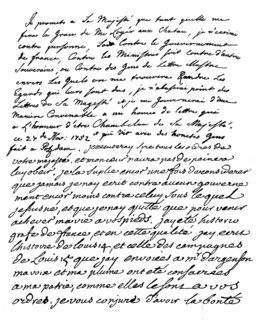 Je promets a Sa Majesté que tant quelle me
fera la Grace de me Loger au Chateau, je n'ecrirai
contre personne, soit Contre le Gouvernement
de france, Contre les Ministres soit contre d'autres
Souverains, ou Contre des Gens de Lettre Illustres
envers Les Quels on me trouvera Rendre Les
Egards qui leurs sont dus, je n'abuserai point des
Lettres de Sa Majesté et je me Gouvernerai d'une
Maniere Convenable a un homme de lettre qui
a L'honneur d'etre Chambellan de Sa Majesté,
et qui vit avec des honetes Gens
fait a Potsdam. jexecuteray tous les ordres de
votre majesté, et mon coeur naura pas de peine a
luy obeir. je la suplie encor une fois de considerer
que jamais je nay ecrit contre aucun gouverne
ment encor moins contre celuy sous le quel
je suis né, et que je nay quitté que pour venir
achever ma vie a vos pieds. jay eté historio
grafe de france, et en cette qualité jay ecrit
lhistoire de Louis 14, et celle des campagnes
de Louis 15 que jay envoiées a mr dargenson
ma voix et ma plume ont eté consacrées
a ma patrie, comme elles le sont a vos
ordres. je vous conjure davoir la bonté